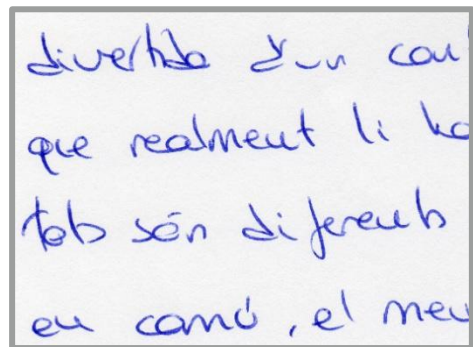 divertida d'un
que realment li
tots són diferents
en comú, el meu